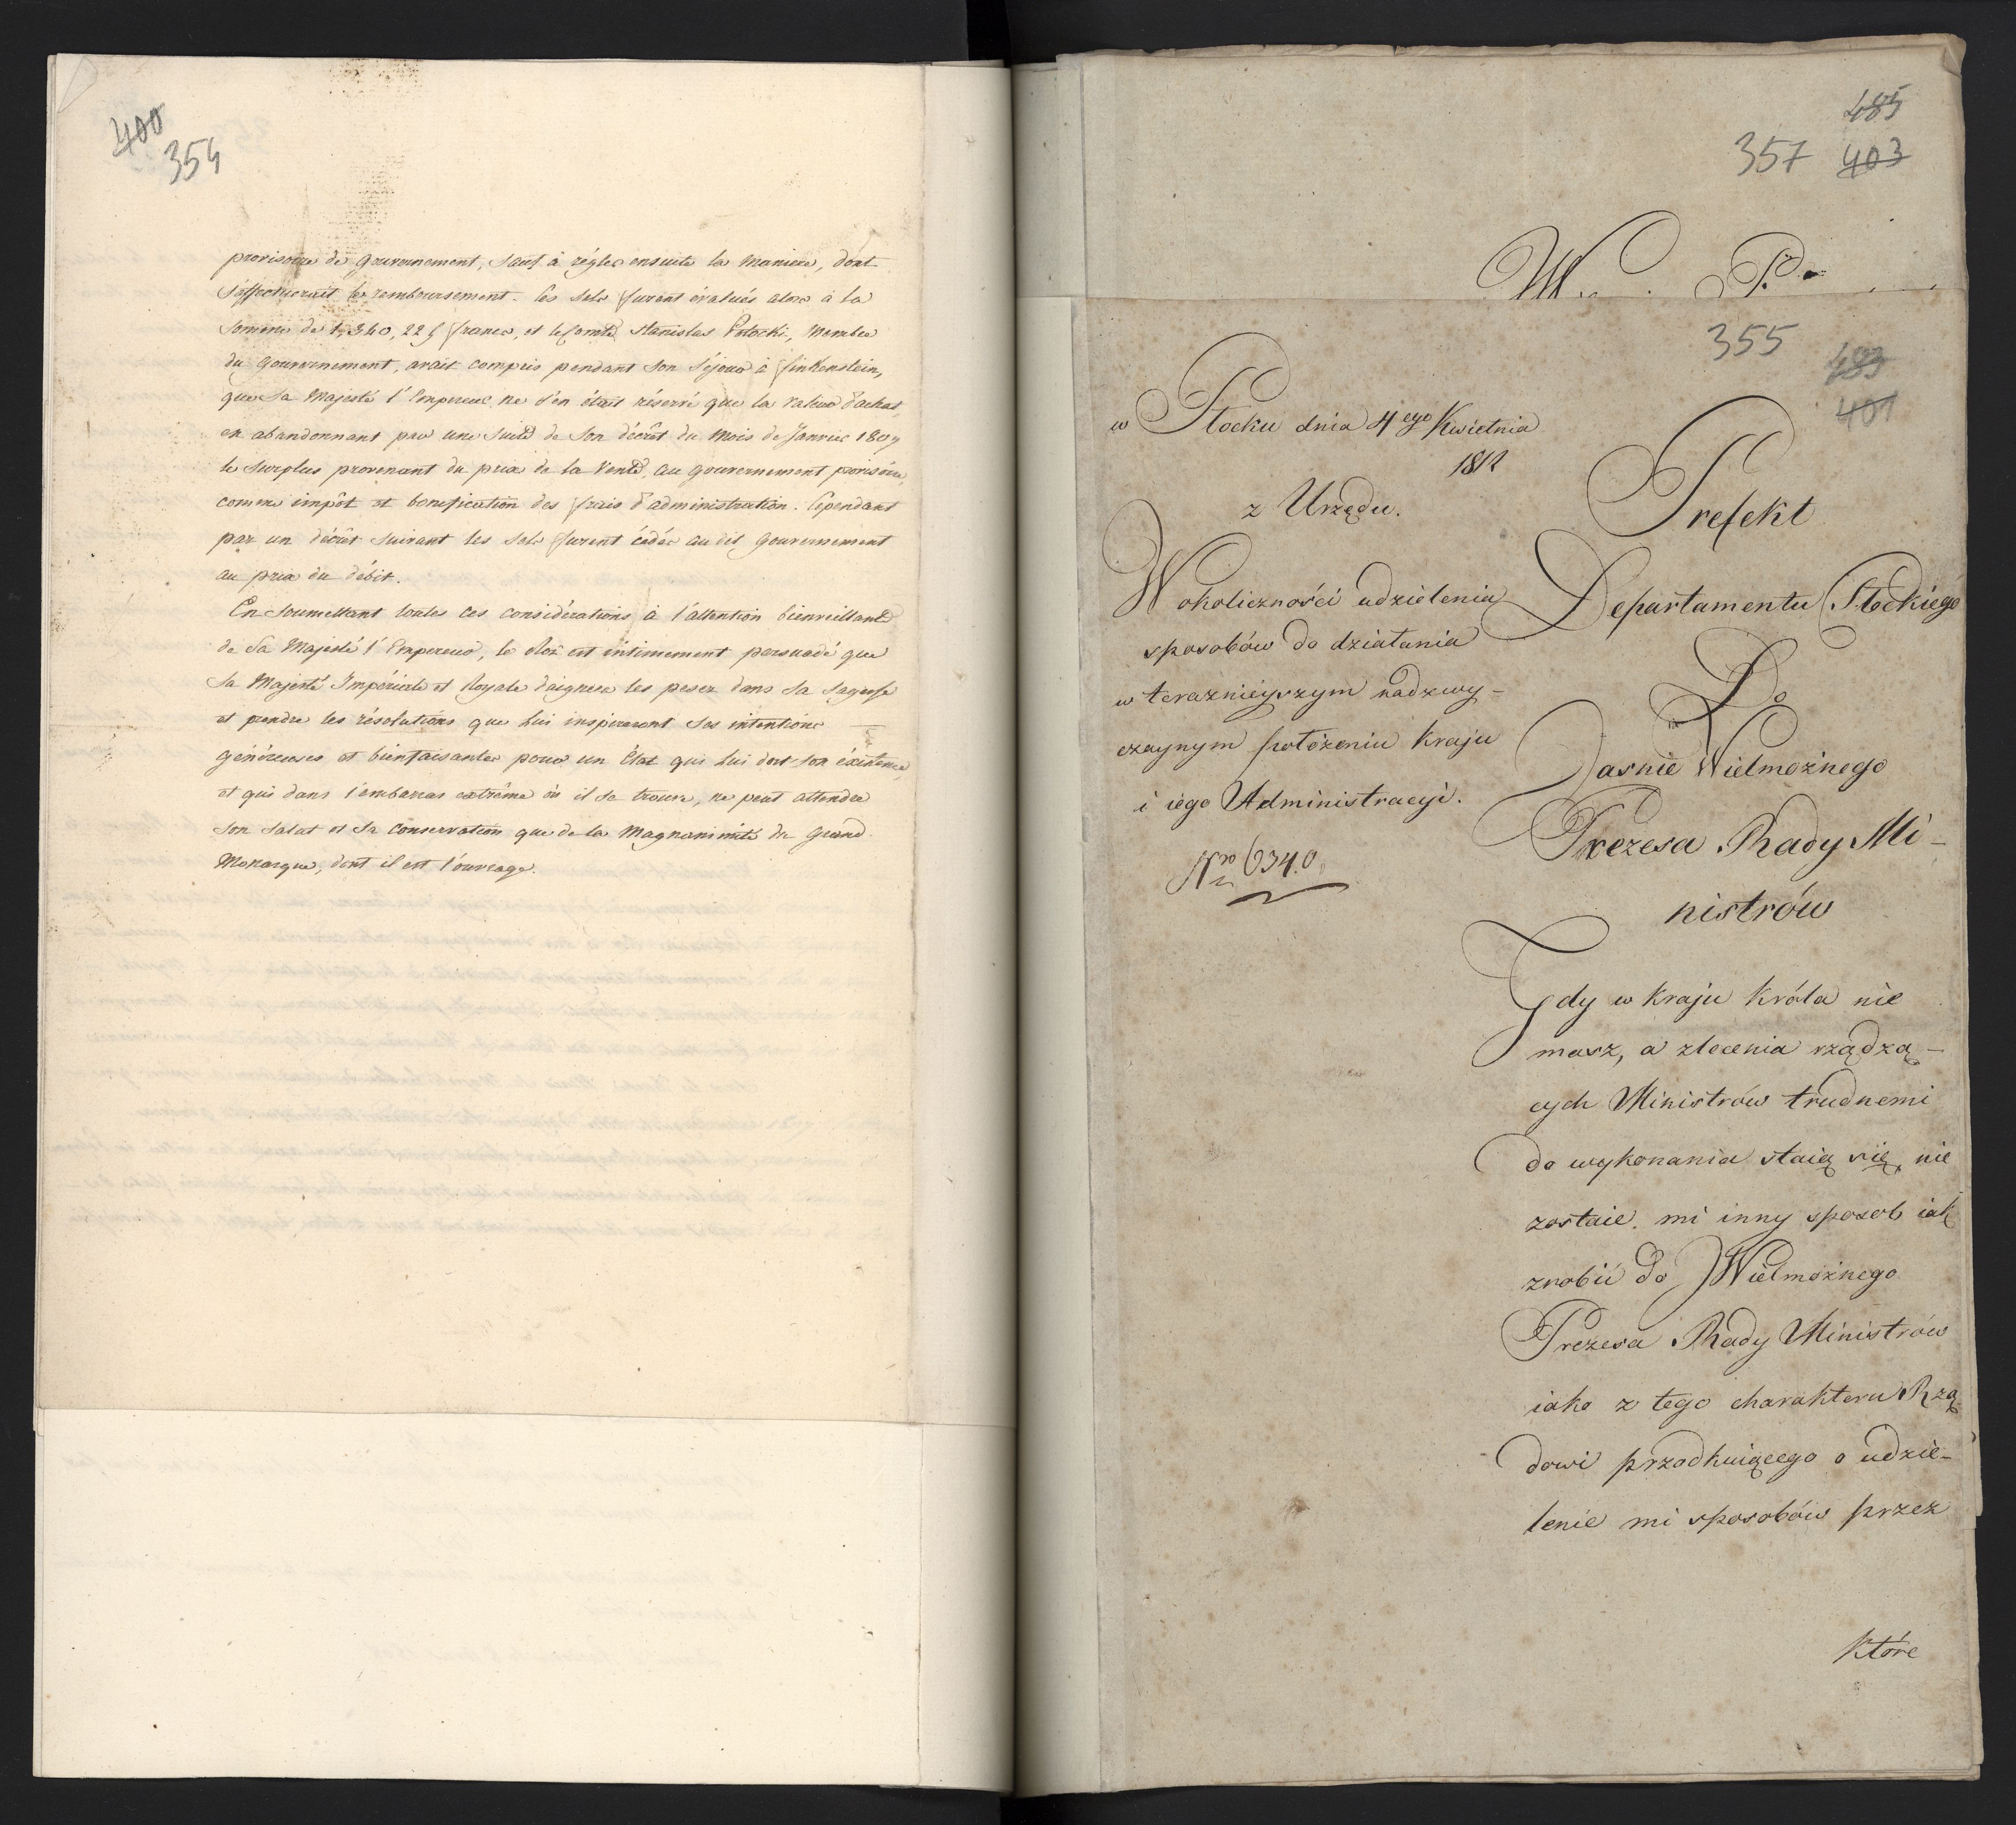 400
354
provisoire de gouvernement, sauf à régler ensuite la Maniere, dont
s'effectuerait le remboursement. Ces sels furent évalués alors à la
Somme de 1,340,225 francs, et le Comte Stanislas Potocki, Membre
du Gouvernement, avait compris pendant son Séjour à Finkenstein,
que Sa Majesté l'Empereur ne s'en était réservé que la valeur d'achat,
en abandonnant par une suite de Son décrêt du Mois de Janvier 1807
le Surplus provenant du prix de la Vente, au gouvernement provisoire,
comme impôt et bonification des frais d'administration. Cependant
par un décrêt suivant les sels furent cédés au dit Gouvernement
au prix du débit.
En soumettant toutes ces considérations à l'attention bienveillante
de Sa Majesté l'Empereur, le Roi est intimement persuadé que
Sa Majesté Impériale et Royale daignera les peser dans Sa Sagesse
et prendre les résolutions que lui inspireront Ses intentions
généreuses et bienfaisantes pour un État qui lui doit son éxistence
et qui dans l'embarras extrême où il se trouve, ne peut attendre
son salut et sa conservation que de la Magnanimité du grand
Monarque, dont il est l'ouvrage.
485
357 403
355
483
401
w Płocku dnia 4ego Kwietnia
1812
z Urzędu.
W okoliczności udzielenia
sposobów do działania
w teraznieyszym nadzwy-
czaynym położeniu kraju
i iego Administracyi.
Nro 6340.
Prefekt
Departamentu Płockiego
Do
Jasnie Wielmożnego
Prezesa Rady Mi-
nistrów
Gdy w kraju Króla nie
masz, a zlecenia rządzą-
cych Ministrów trudnemi
do wykonania staią się, nie
zostaie mi inny sposob iak
zrobić do JWielmożnego
Prezesa Rady Ministrów
iako z tego charakteru Rzą-
dowi przodkuiącego o udzie-
lenie mi sposobów przez
które